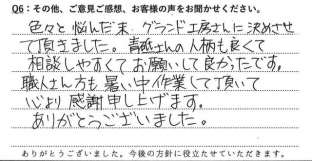 Q6:その他、ご意見ご感想、お客様の声をお聞かせください。
色々と悩んだ末、グランド工房さんに決めさせ
て頂きました。青越さんの人柄も良くて
相談しやすくてお願いして良かったです。
職人さん方も暑い中作業して頂いて
心より感謝申し上げます。
ありがとうございました。
ありがとうございました。今後の方針に役立たせていただきます。